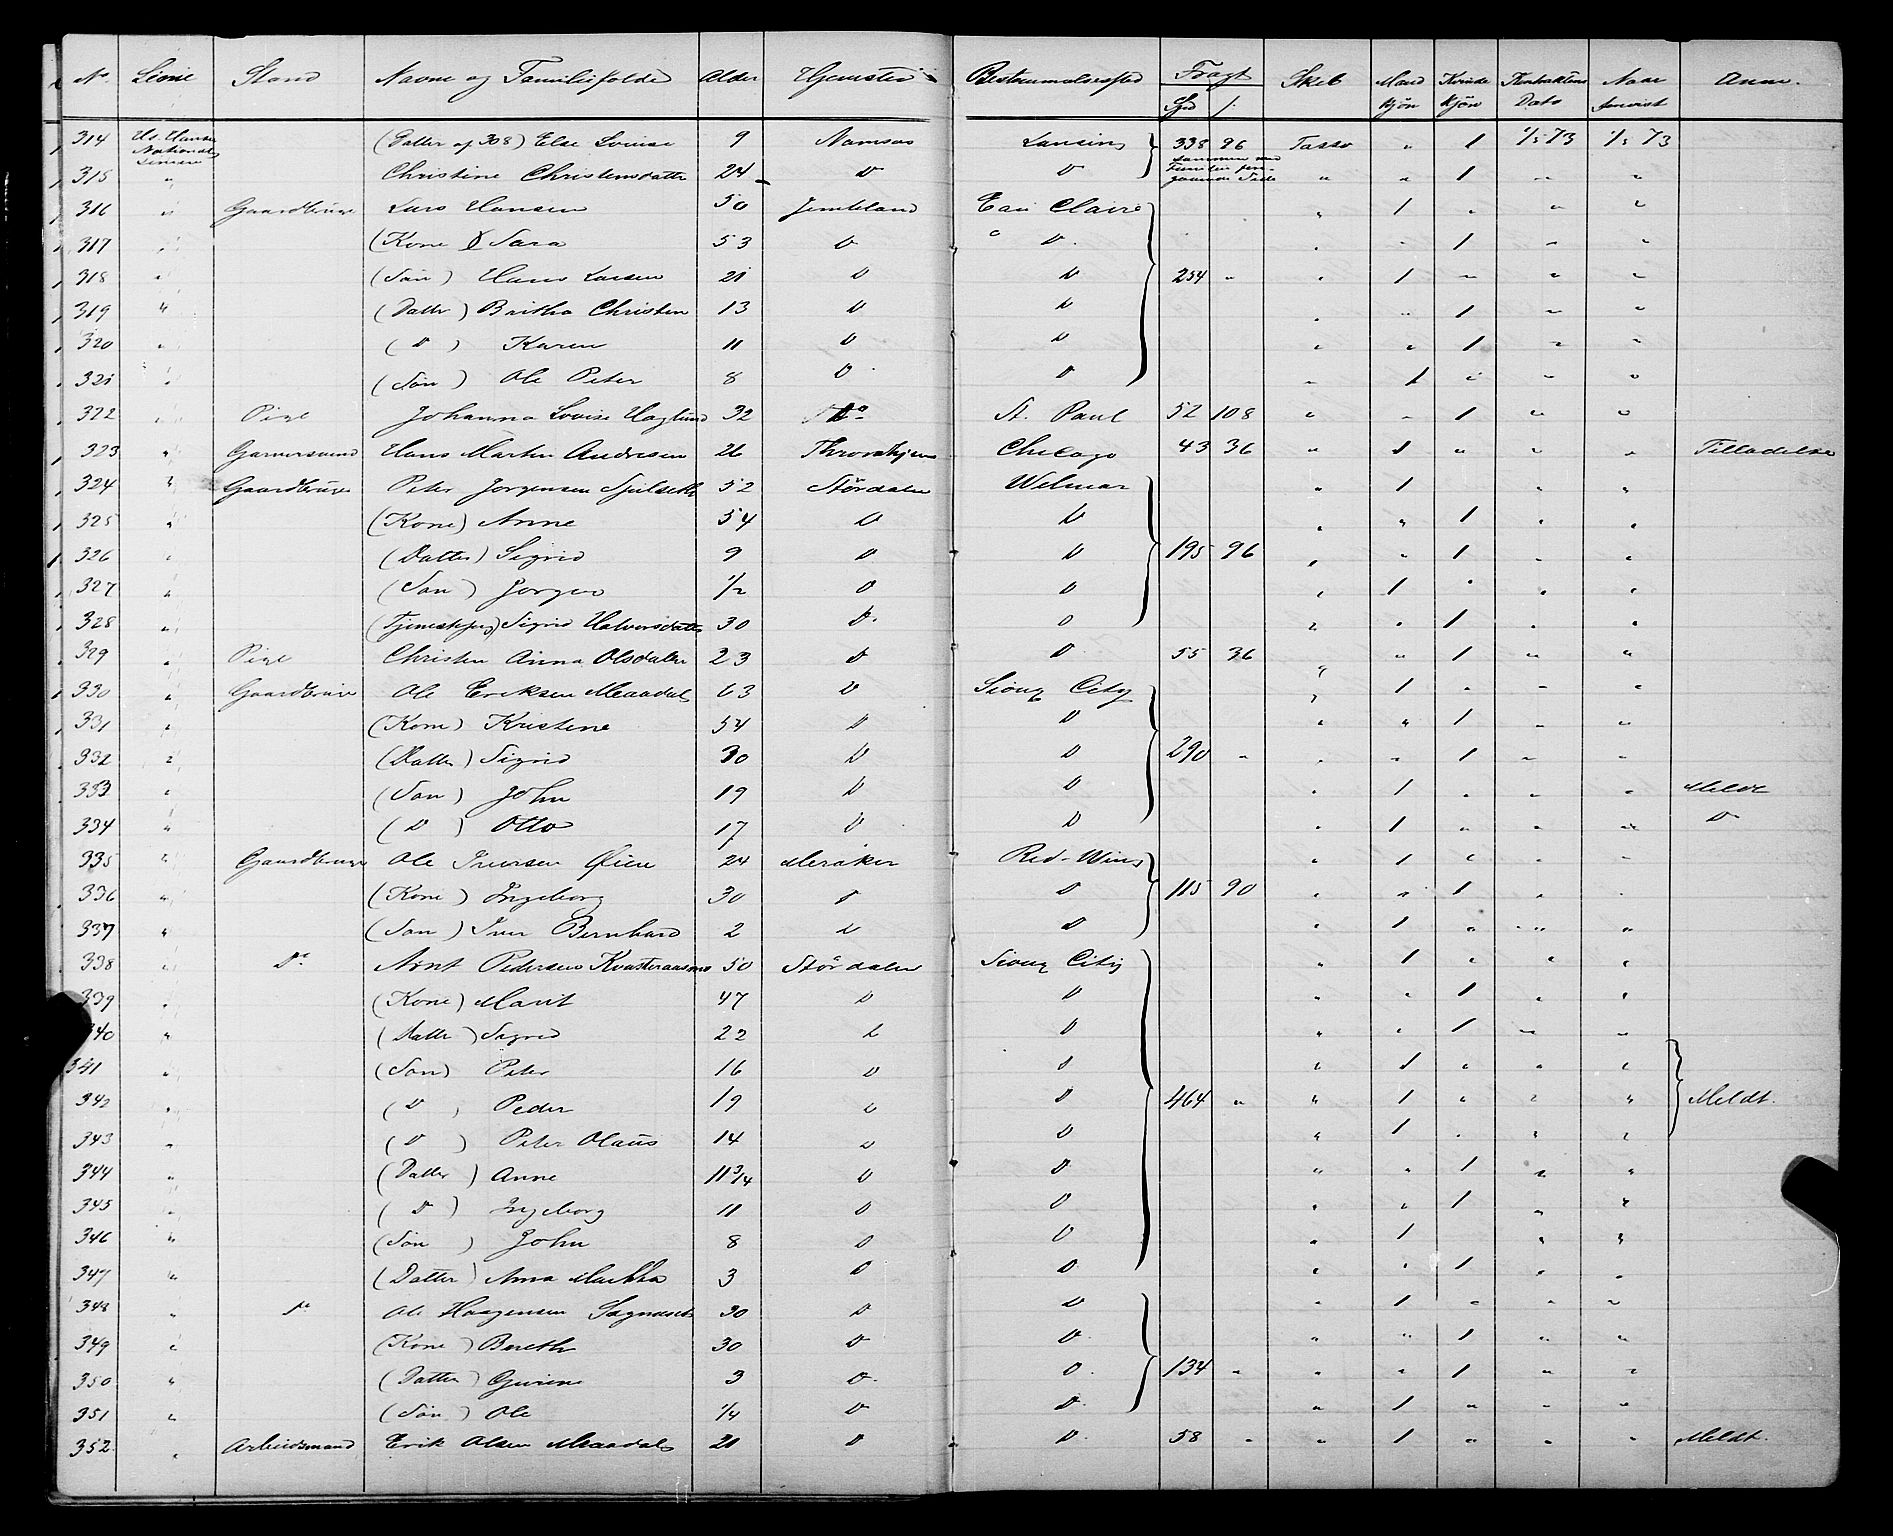 No. Linie Stand Navne og Familieforhold Alder Hjemsted Bestemmelsessted Fragt Skib Mand Kvinde Kontraktens Naar Anm.
Spd /: kjøn kjøn Dato anvist
314 (Datter af 308) Else Lovise 9 Namsos Lansing 338 96 Tasso " 1 1/5 73 1/5 73
National Linien sammen med
315 " Christine Christensdatter 24 D D " " 1 " "
316 " Gaardbruger Lars Hansen 50 Jemtland Eau Claire " 1 " " "
317 " (Kone) Sara 53 D D " " 1 " "
318 " (Søn) Hans Larsen 21 D D 254 " " 1 " " "
319 " (Datter) Britha Christen 13 D D " " 1 " "
320 " (D) Karen 11 D D " " 1 " "
321 " (Søn) Ole Peter 8 D D " 1 " " "
322 " Pige Johanna Lovise Haglund 32 Do St. Paul 52 108 " " 1 " "
323 " Garversvend Hans Martin Andresen 26 Throndhjem Chicago 43 36 " 1 " " " Tilladelse
324 " Gaardbruger Peter Jørgensen 52 Størdalen Welmar " 1 " "
325 " (Kone) Anne 54 D D " " 1 " "
326 " (Datter) Sigrid 9 D D 195 96 " " 1 " "
327 " (Søn) Jørgen 1/2 D D " 1 " " "
328 " (Tjenestpige) Sigrid Halvorsdatter 30 D D " " 1 " "
329 " Pige Christen Anna Olsdatter 23 D D 55 36 " " 1 " "
330 " Gaardbruger Ole Eriksen Meaadal 63 D Sioux City " 1 " " "
331 " (Kone) Kristine 54 D D " " 1 " "
332 " (Datter) Sigrid 30 D D 290 " " " 1 " "
333 " (Søn) John 19 D D " 1 " " " Meldt
334 " (D) Otto 17 D D " 1 " " " D
335 " Gaardbruger Ole Iversen Øien 24 Meraker Red-Wing " 1 " " "
336 " (Kone) Ingeborg 30 D D 115 90 " " 1 " "
337 " (Søn) Iver Bernhard 2 D D " 1 " " "
338 " Do Arnt Pedersen 50 Størdalen Sioux City " 1 " " "
339 " (Kone) Marit 47 D D " " 1 " "
340 " (Datter) Sigrid 22 D D " " 1 " "
341 " (Søn) Peter 16 D D " 1 " " "
342 " (D) Peder 19 D D 464 " " 1 " " " Meldt.
343 " (D) Peter Olaus 14 D D " 1 " " "
344 " (Datter) Anne 11 3/4 D D " " 1 " "
345 " (D) Ingeborg 11 D D " " 1 " "
346 " (Søn) John 8 D D " 1 " "
347 " (Datter) Anna Martha 3 D D " " 1 " "
348 " Do Ole Haagensen 30 D D " 1 " " "
349 " (Kone) Bereth 30 D D " " 1 " "
350 " (Datter) Gurine 3 D D 134 " " " 1 " "
351 " (Søn) Ole 1/4 D D " 1 " " "
352. " Arbeidsmand Erik Olsen Meaadal 21 D D 58 " " 1 " " " Meldt.